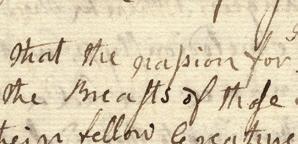 that the passion for
the Breasts of those
their fellow Creature